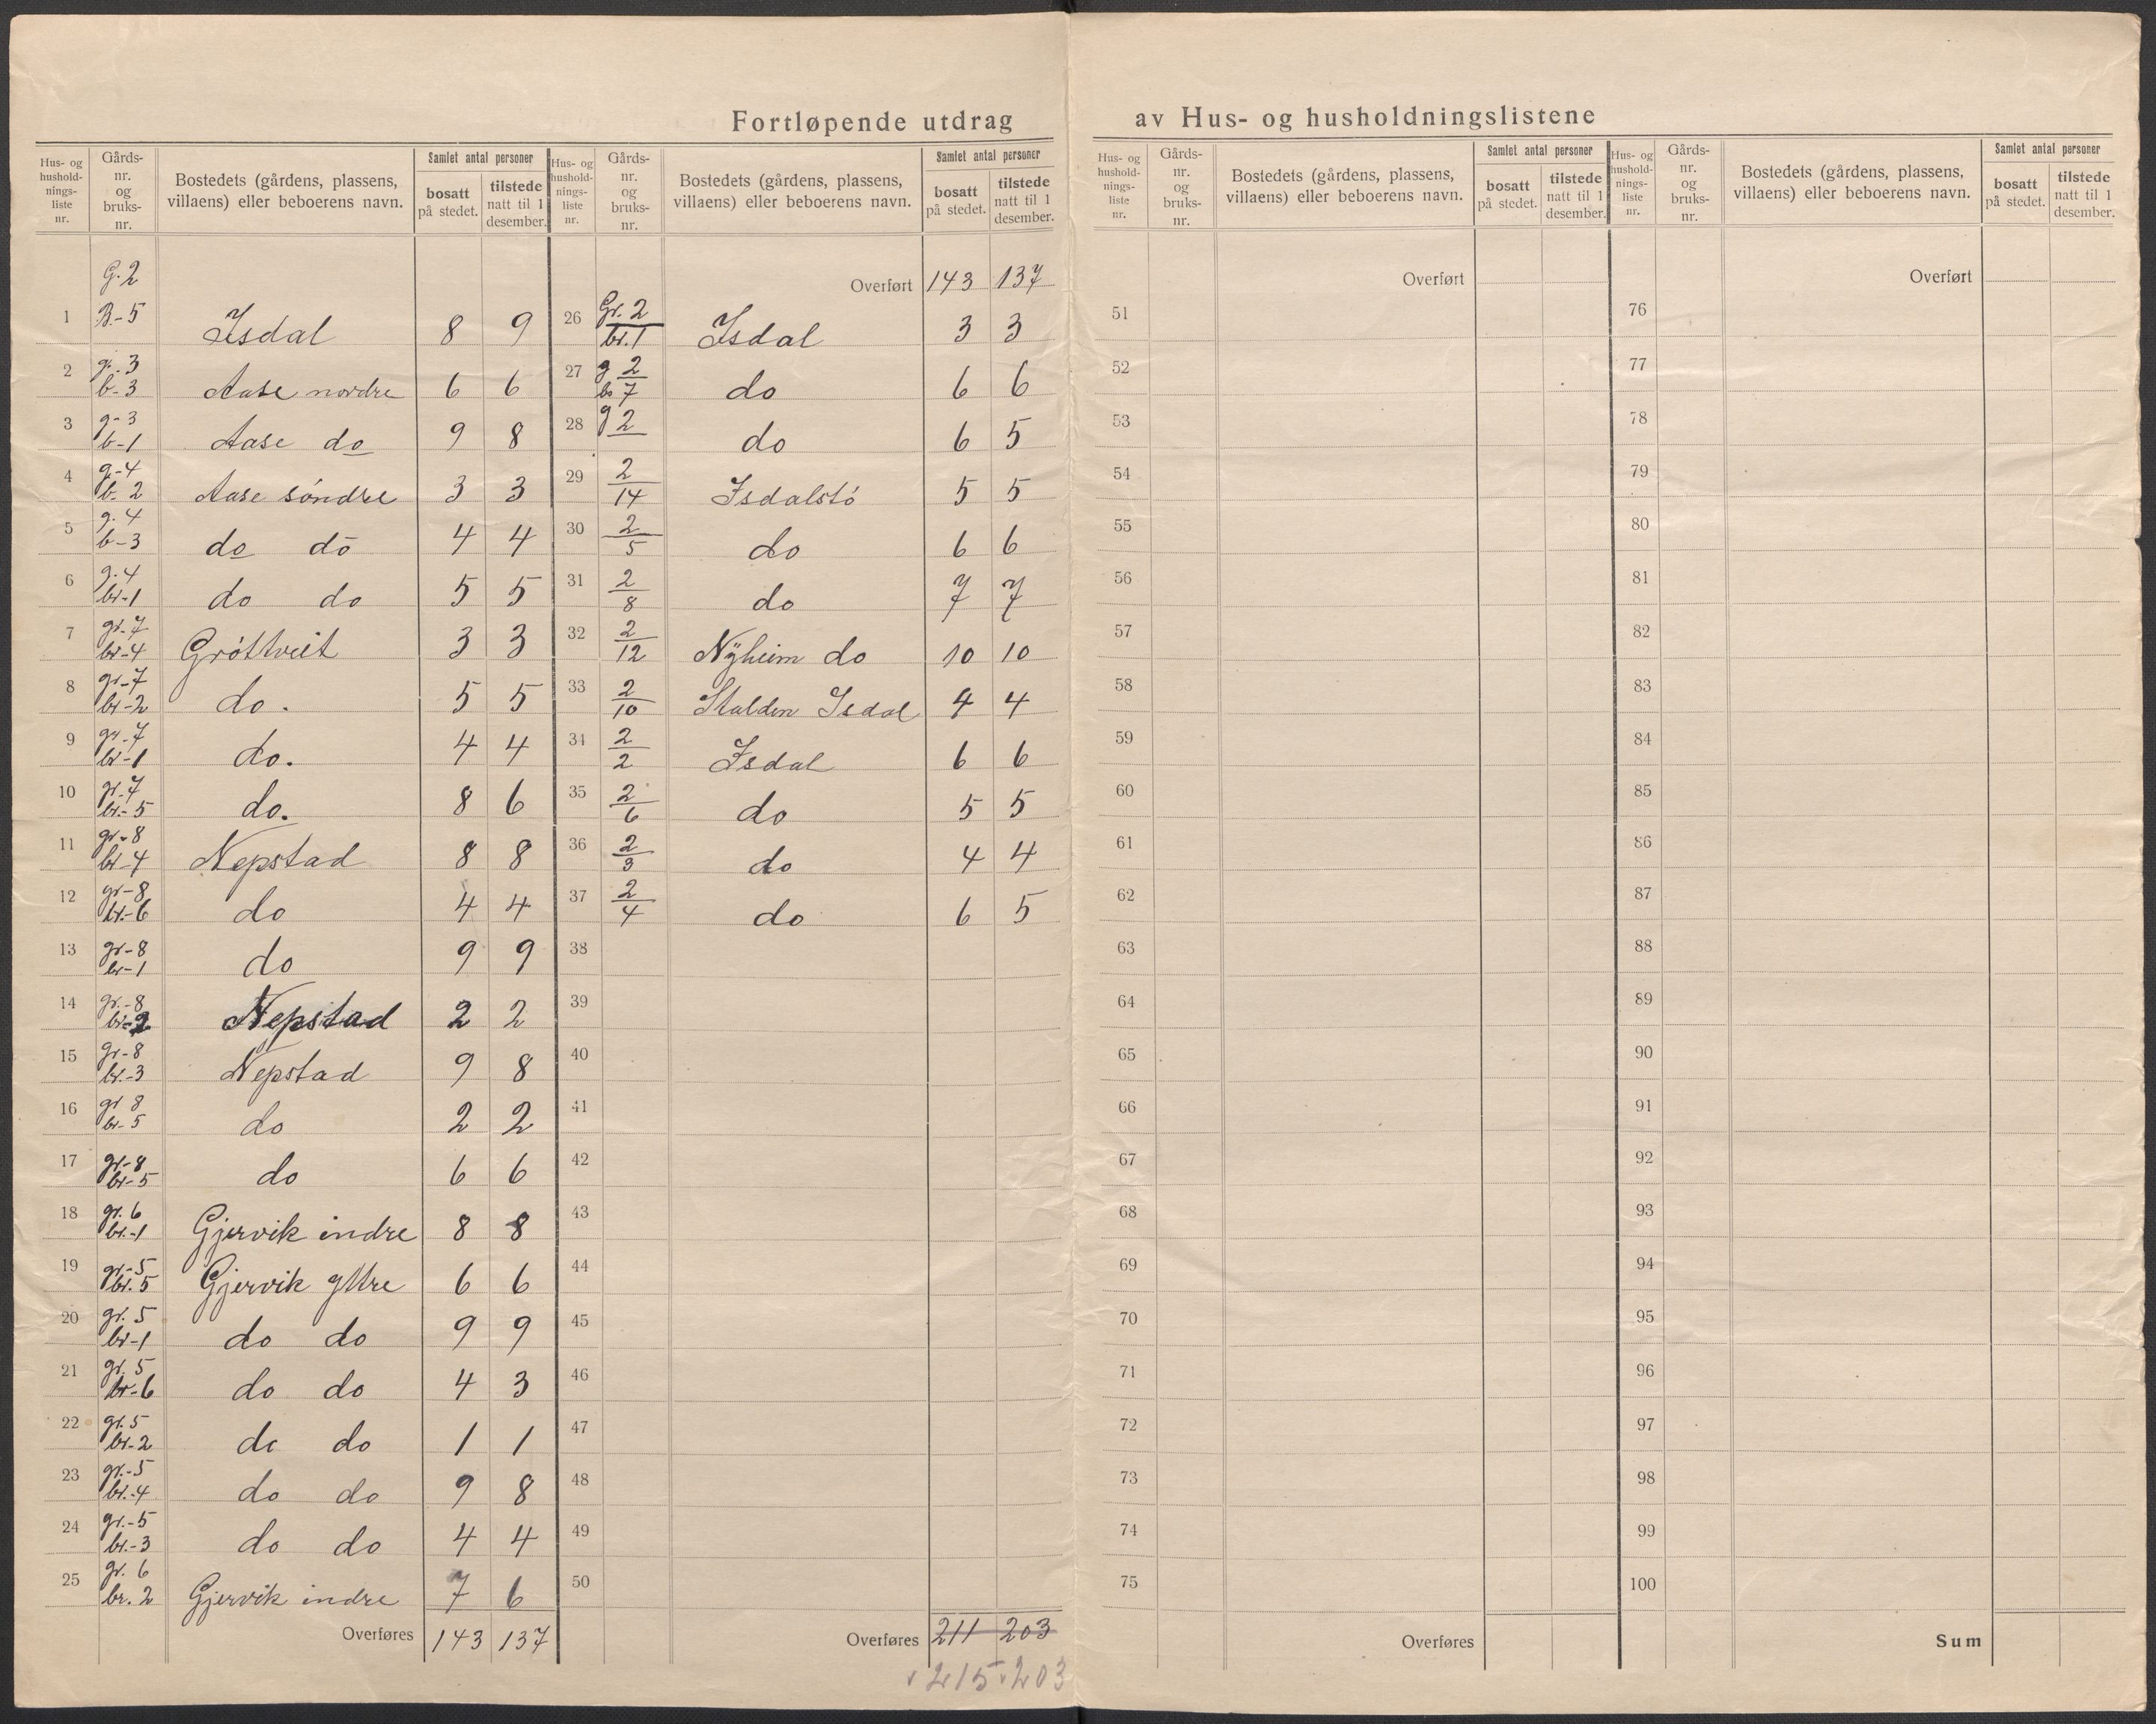 Fortløpende utdrag av Hus- og husholdningslistene
Hus- og hushold-nings-liste nr. Gårds-nr. og bruks-nr. Bostedets (gårdens, plassens, villaens) eller beboerens navn. Samlet antal personer bosatt på stedet. tilstede natt til 1 desember.
G. 2
1 B.-5 Isdal 8 9
2 g. 3 b-3 Aase nordre 6 6
3 g-3 b-1 Aase do 9 8
4 g-4 b. 2 Aase söndre 3 3
5 g. 4 b-3 do do 4 4
6 g. 4 br-1 do do 5 5
7 gr-7 br-4 Gröttveit 3 3
8 gr-7 br-2 do. 5 5
9 gr-7 br-1 do. 4 4
10 gr. 7 br.-5 do. 8 6
11 gr-8 br-4 Nepstad 8 8
12 gr-8 br.-6 do 4 4
13 gr-8 br-1 do 9 9
14 gr.-8 br-2 Nepstad 2 2
15 gr-8 br.-3 Nepstad 9 8
16 gr 8 br-5 do 2 2
17 gr-8 br-5 do 6 6
18 gr. 6 br.-1 Gjervik indre 8 8
19 gr-5 br. 5 Gjervik yttre 6 6
20 gr. 5 br-1 do do 9 9
21 gr. 5 br-6 do do 4 3
22 gr. 5 br-2 do do 1 1
23 gr.-5 br.-4 do do 9 8
24 gr.-5 br.-3 do do 4 4
25 gr. 6 br. 2 Gjervik indre 7 6
Overføres 143 137
Hus- og hushold-nings-liste nr. Gårds-nr. og bruks-nr. Bostedets (gårdens, plassens, villaens) eller beboerens navn. Samlet antal personer bosatt på stedet. tilstede natt til 1 desember.
Overført 143 137
26 Gr. 2 br. 1 Isdal 3 3
27 g 2 b 7 do 6 6
28 g 2 do 6 5
29 2/14 Isdalstö 5 5
30 2/5 do 6 6
31 2/8 do 7 7
32 2/12 Nyheim do 10 10
33 2/10 Stalden Isdal 4 4
34 2/2 Isdal 6 6
35 2/6 do 5 5
36 2/3 do 4 4
37 2/4 do 6 5
38
39
40
41
42
43
44
45
46
47
48
49
50
Overføres 211 203
215 203
Hus- og hushold-nings-liste nr. Gårds-nr. og bruks-nr. Bostedets (gårdens, plassens, villaens) eller beboerens navn. Samlet antal personer bosatt på stedet. tilstede natt til 1 desember.
Overført
51
52
53
54
55
56
57
58
59
60
61
62
63
64
65
66
67
68
69
70
71
72
73
74
75
Overføres
Hus- og hushold-nings-liste nr. Gårds-nr. og bruks-nr. Bostedets (gårdens, plassens, villaens) eller beboerens navn. Samlet antal personer bosatt på stedet. tilstede natt til 1 desember.
Overført
76
77
78
79
80
81
82
83
84
85
86
87
88
89
90
91
92
93
94
95
96
97
98
99
100
Sum